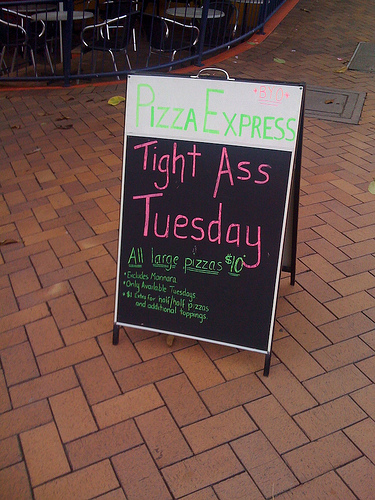 Pizza Express
Tight Ass
Tuesday
All large pizzas $10
• Excludes Mannara
• Only Available Tuesdays
• $1 Extra for half/half pizzas
and additional toppings.